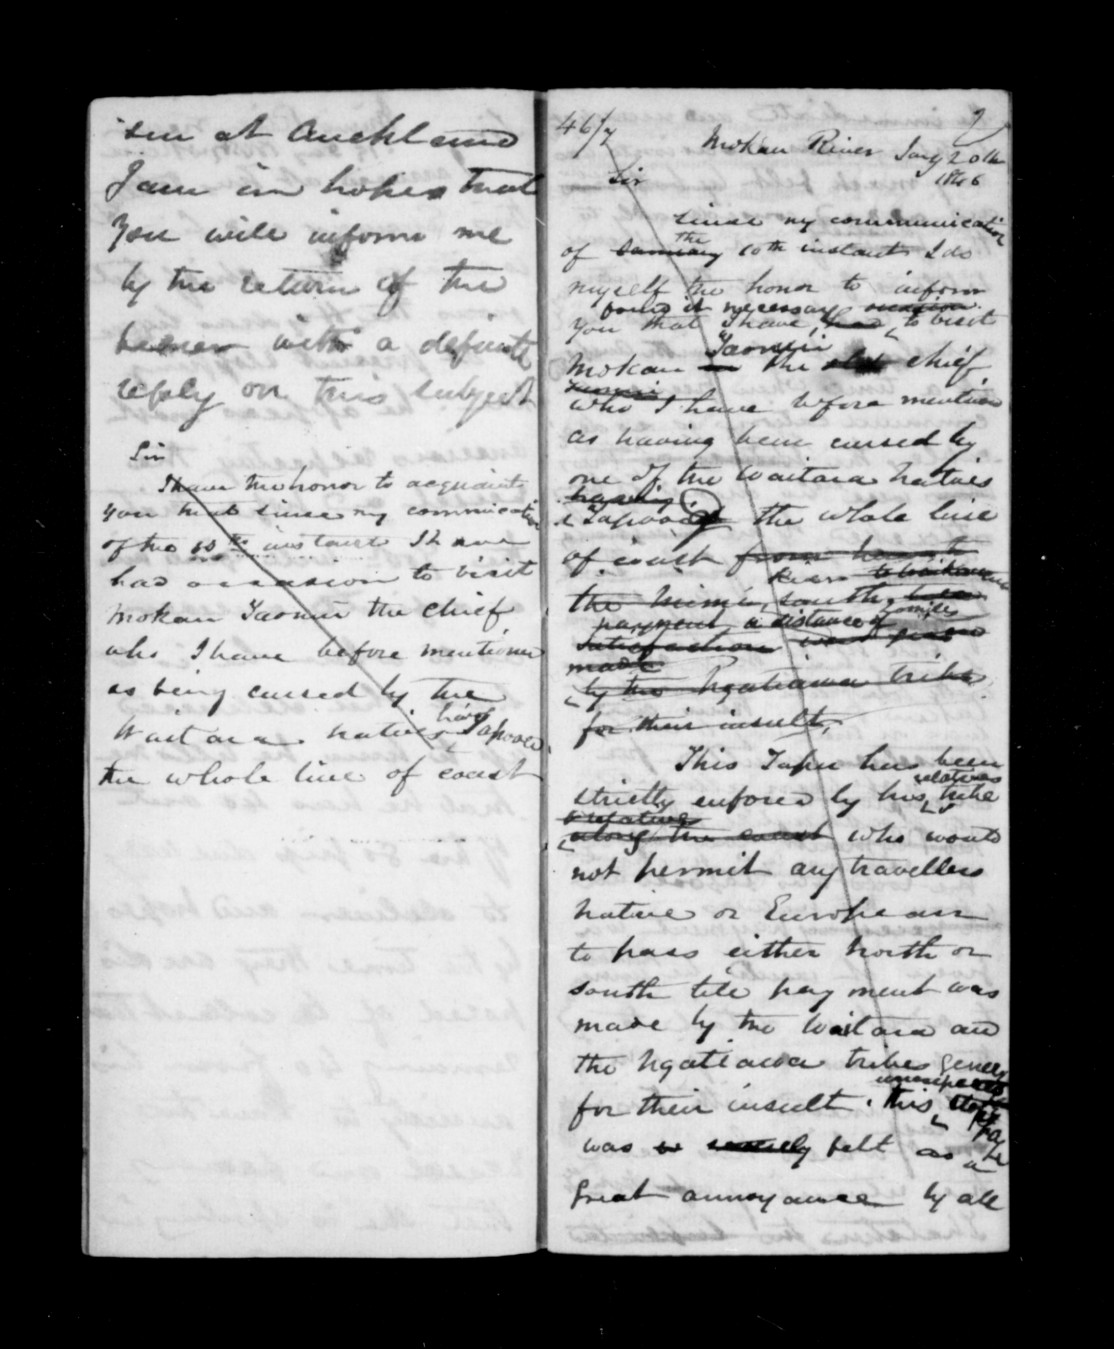 seu at Auckland
I am in hopes that
you will inform me
by the return of the
bearer with a definite
reply on this subject
Sir
I have the honor to acquaint
you that since my communication
of the 10th instant I have
had occasion to visit
Mokau Taonui the chief
who I have before mentioned
as being cursed by the
Waitara natives having Tapooed
the whole line of coast
46/7
9
Mokau River Jany 20th
1846
Sir
Since my communication
of the 10th instant I do
myself the honor to inform
you that I have found it necessary to visit
Mokau Taonui the chief
who I have before mention
as having been cursed by
one of the Waitara natives
& Tapooed the whole line
of coast from
the Mimi, south,
River
payment, a distance of miles
Satisfaction
made
by the Ngatiawa tribe
for their insult,
This Tapu has been
strictly enforced by his relatives tribe
& relatives
along the coast who would
not permit any travellers
native or European
to pass either North or
south till payment was
made by the Waitara and
the Ngatiawa tribes
for their insult. this
was felt as a
great annoyance by all